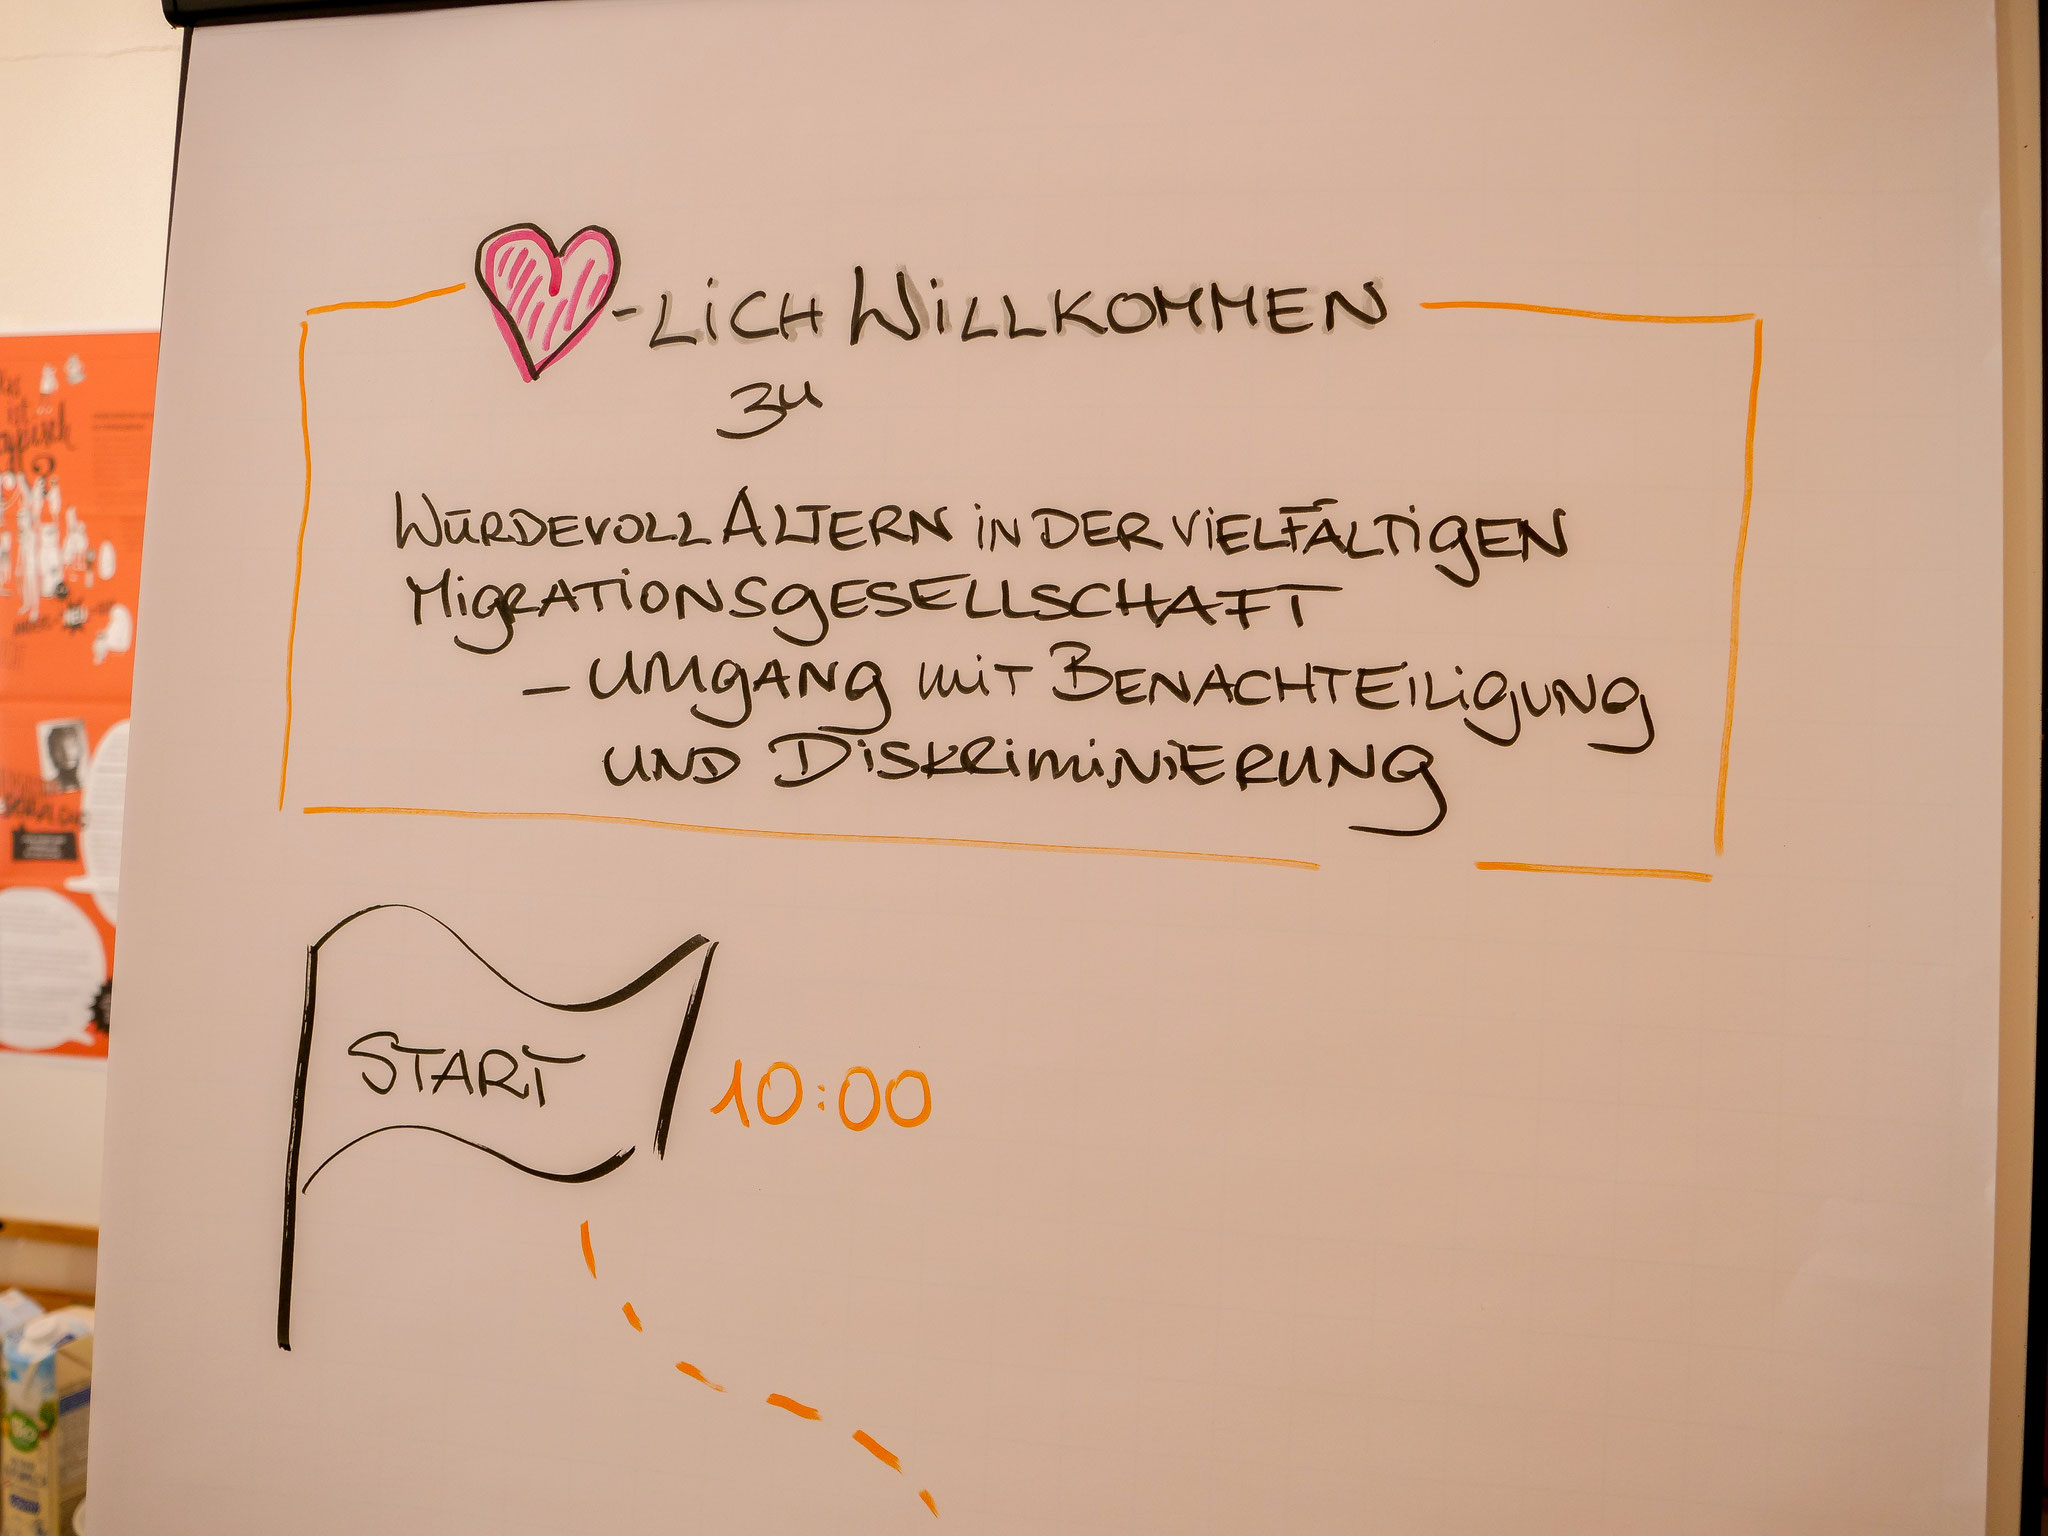 -LICH WILLKOMMEN
zu
WÜRDEVOLL ALTERN IN DER VIELFÄLTIGEN
MIGRATIONSGESELLSCHAFT
– UMGANG MIT BENACHTEILIGUNG
UND DISKRIMINIERUNG
START
10:00
ist
Bio